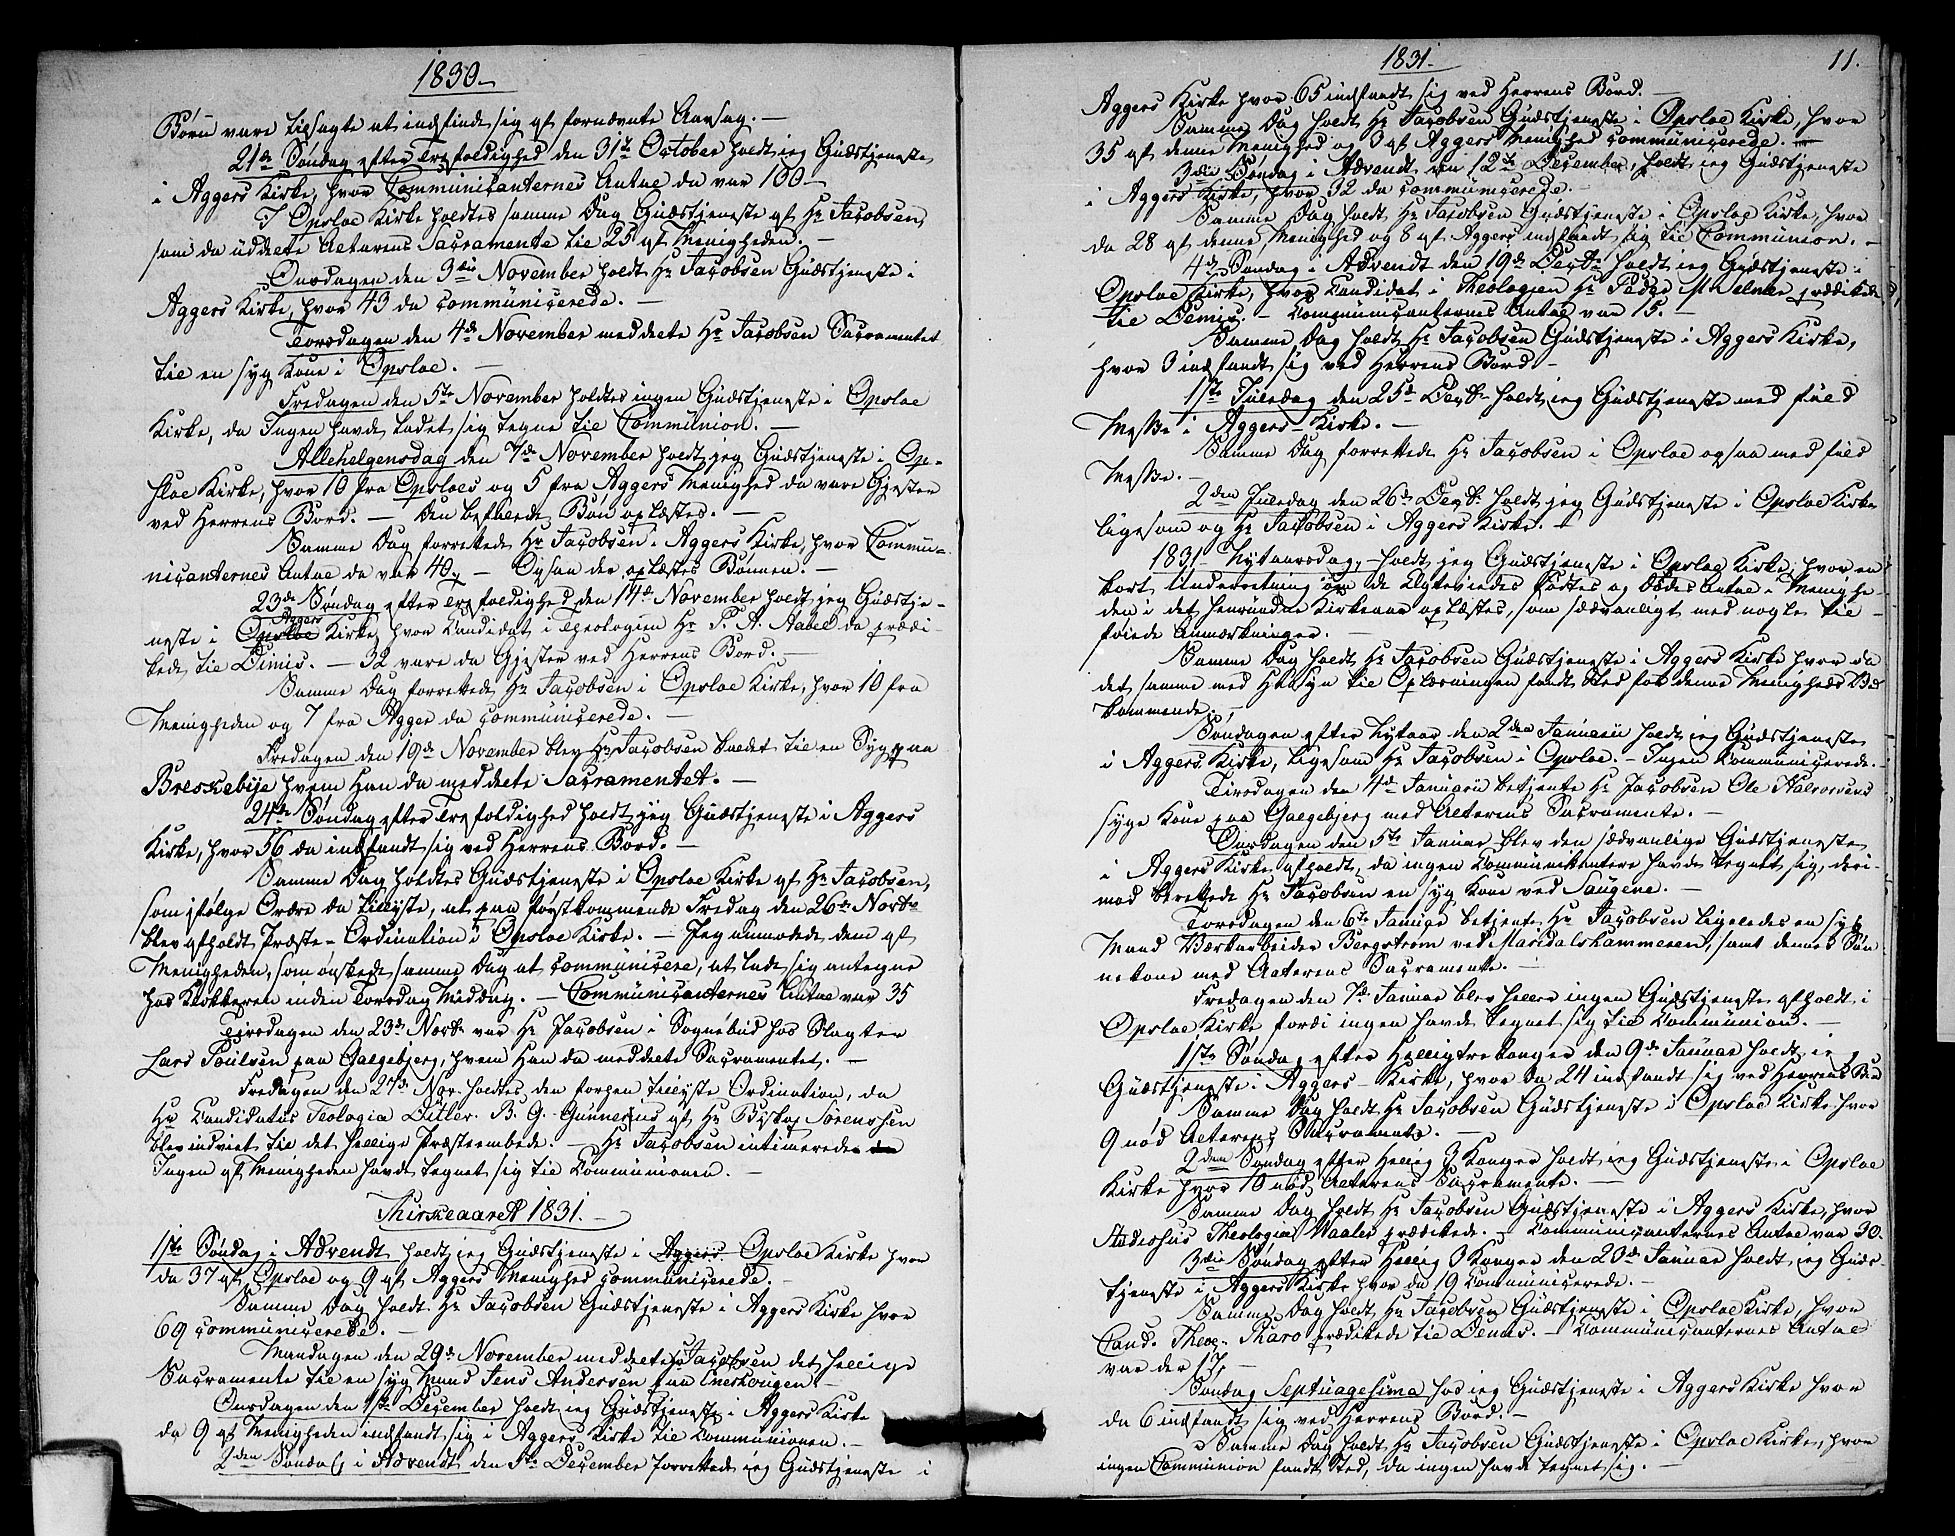 1830.
Børn vare tilsagte at indfinde sig af fornævnte Aarsag. —
21de Søndag efter Trefoldighed den 31te October holdt jeg Gudstjeneste
i Aggers Kirke, hvor Communicanternes Antal da var 100 —
I Opsloe Kirke holdtes samme Dag Gudstjeneste af Hr Jacobsen,
som da uddeelte Alterens Sacramente til 25 af Menigheden. —
Onsdagen den 3die November holdt Hr Jacobsen Gudstjeneste i
Aggers Kirke, hvor 43 da communicerede. —
Torsdagen den 4de November meddeelte Hr Jacobsen Sacramentet
til en syg Kone i Opsloe. —
Fredagen den 5te November holdtes ingen Gudstjeneste i Opsloe
Kirke, da Ingen havde ladet sig tegne til Communion. —
Allehelgensdag den 7de November holdt jeg Gudstjeneste i Op-
sloe Kirke, hvor 10 fra Opsloes og 5 fra Aggers Menighed da vare Gjester
ved Herrens Bord. — Den befalede Bøn oplæstes. —
Samme Dag forrettede Hr Jacobsen i Aggers Kirke, hvor Commu-
nicanternes Antal da var 40. — Ogsaa der oplæstes Bønnen. —
23de Søndag efter Trefoldighed den 14de November holdt jeg Gudstje-
neste i Opsloe Aggers Kirke, hvor Candidat i Theologien Hr P. A. Aabel da prædi-
kede til Dimis. — 32 vare da Gjester ved Herrens Bord. —
Samme Dag forrettede Hr Jacobsen i Opsloe Kirke, hvor 10 fra
Menigheden og 7 fra Agger da communicerede. —
Fredagen den 19de November blev Hr Jacobsen kaldet til en Syg paa
Breskebye hvem Han da meddeelte Sacramentet. —
24de Søndag efter Trefoldighed holdt jeg Gudstjeneste i Aggers
Kirke, hvor 56 da indfandt sig ved Herrens Bord. —
Samme Dag holdtes Gudstjeneste i Opsloe Kirke af Hr Jacobsen,
som ifølge Ordre da tillyste, at paa førstkommende Fredag den 26de Novbr
blev afholdt Præste-Ordination i Opsloe Kirke. — Jeg anmodede dem af
Menigheden, som ønskede samme Dag at communicere, at lade sig antegne
hos Klokkeren inden Torsdag Middag. — Communicanternes Antal var 35
Tirsdagen den 23de Novbr var Hr Jacobsen i Sognebud hos Slagter
Lars Poulsen paa Galgebjerg, hvem Han da meddeelte Sacramentet. —
Fredagen den 27de Nov. holdtes den forhen tillyste Ordination, da
Hr Candidatus Teologia Ditlev B. G. Gunnerius af Hr Biskop Sørenssen
blev indviet til det hellige Præsteembede. — Hr Jacobsen intimerede
Ingen af Menigheden havde tegnet sig til Communionen. —
Kirkeaaret 1831. —
1ste Søndag i Advendt holdt jeg Gudstjeneste i Aggers Opsloe Kirke hvor
da 37 af Opsloe og 9 af Aggers Menighed communicerede. —
Samme Dag holdt Hr Jacobsen Gudstjeneste i Aggers Kirke hvor
69 communicerede. —
Mandagen den 29de November meddeelte Hr Jacobsen det hellige
Sacramente til en syg Mand Jens Andersen paa Enerhougen. —
Onsdagen den 1ste December holdt jeg Gudstjeneste i Aggers Kirke
da 9 af Menigheden indfandt sig i Aggers Kirke til Communionen. —
2den Søndag i Advendt den 5te December forrettede jeg Gudstjeneste i
1831.
11.
Aggers Kirke hvor 65 indfandt sig ved Herrens Bord. —
Samme Dag holdt Hr Jacobsen Gudstjeneste i Opsloe Kirke, hvor
35 af denne Menighed og 3 af Aggers Menighed communicerede. —
3die Søndag i Advendt den 12te December, holdt jeg Gudstjeneste
i Aggers Kirke, hvor 32 da communicerede. —
Samme Dag holdt Hr Jacobsen Gudstjeneste i Opsloe Kirke, hvor
da 28 af denne Menighed og 8 af Aggers indfandt sig til Communion. —
4de Søndag i Advendt den 19de Decbr holdt jeg Gudstjeneste i
Opsloe Kirke, hvor Candidat i Theologien Hr Peder prædikede
til Demis. — Communicanternes Antal var 15. —
Samme Dag holdt Hr Jacobsen Gudstjeneste i Aggers Kirke,
hvor 3 indfandt sig ved Herrens Bord —
1ste Juledag den 25de Decbr holdt jeg Gudstjeneste med fuld
Messe i Aggers-Kirke. —
Samme Dag forrettede Hr Jacobsen i Opsloe ogsaa med fuld
Messe. —
2den Juledag den 26de Decbr holdt jeg Gudstjeneste i Opsloe Kirke
ligesom og Hr Jacobsen i Aggers Kirke. —
1831 Nytaarsdag, holdt jeg Gudstjeneste i Opsloe Kirke, hvor en
kort Underretning om de Egteviedes Fødtes og Dødes Antal i Menighe-
den i det henrundne Kirkeaar oplæstes, som sædvanligt med nogle til-
føiede Anmærkninger. —
Samme Dag holdt Hr Jacobsen Gudstjeneste i Aggers Kirke hvor da
det samme med Hensyn til Oplæsningen fandt Sted for denne Menigheds Ved-
kommende. —
Søndagen efter Nytaar den 2den Januar holdt jeg Gudstjeneste
i Aggers Kirke, ligesom Hr Jacobsen i Opsloe. — Ingen Communicerede. —
Tirsdagen den 4de Januar betjente Hr Jacobsen Ole Halvorsens
syge Kone paa Galgebjerg med Alterens Sacramente. —
Onsdagen den 5te Januar blev den sædvanlige Gudstjeneste
i Aggers Kirke afholdt, da ingen Communikantere havde tegnet sig, deri-
mod berettede Hr Jacobsen en syg Kone ved Saugene. —
Torsdagen den 6te Januar betjente Hr Jacobsen ligeledes en syg
Mand Værkarbeider Bergstrøm ved Maridalshammeren, samt dennes Søn-
nekone med Alterens Sacramente. —
Fredagen den 7de Januar blev heller ingen Gudstjeneste afholdt i
Opsloe Kirke fordi ingen havde tegnet sig til Communion. —
1ste Søndag efter Helligtrekonger den 9de Januar holdt jeg
Gudstjeneste i Aggers-Kirke, hvor da 24 indfandt sig ved Herrens Bord
Samme Dag holdt Hr Jacobsen Gudstjeneste i Opsloe Kirke hvor
9 nød Alterens Sacramente. —
2den Søndag efter Hellig 3 Konger holdt jeg Gudstjeneste i Opsloe
Kirke hvor 10 nød Alterens Sacramente. —
Samme Dag holdt Hr Jacobsen Gudstjeneste i Aggers Kirke, hvor
Studiosus Theologia Waaler prædikede. — Communicanternes Antal var 30.
3die Søndag efter Hellig 3 Konger den 23de Januar holdt jeg Guds-
tjeneste i Aggers Kirke hvor da 19 Communicerede. —
Samme Dag holdt Hr Jacobsen Gudstjeneste i Opsloe Kirke, hvor
Cand. Theol. Tharo prædikede til Demis. — Communicanternes Antal
var der 17. —
Søndag Septuagesima holdt jeg Gudstjeneste i Aggers Kirke hvor
da 6 indfandt sig ved Herrens Bord. —
Samme Dag holdt Hr Jacobsen Gudstjeneste i Opsloe Kirke, hvor
ingen Communion fandt Sted, da ingen havde tegnet sig. —